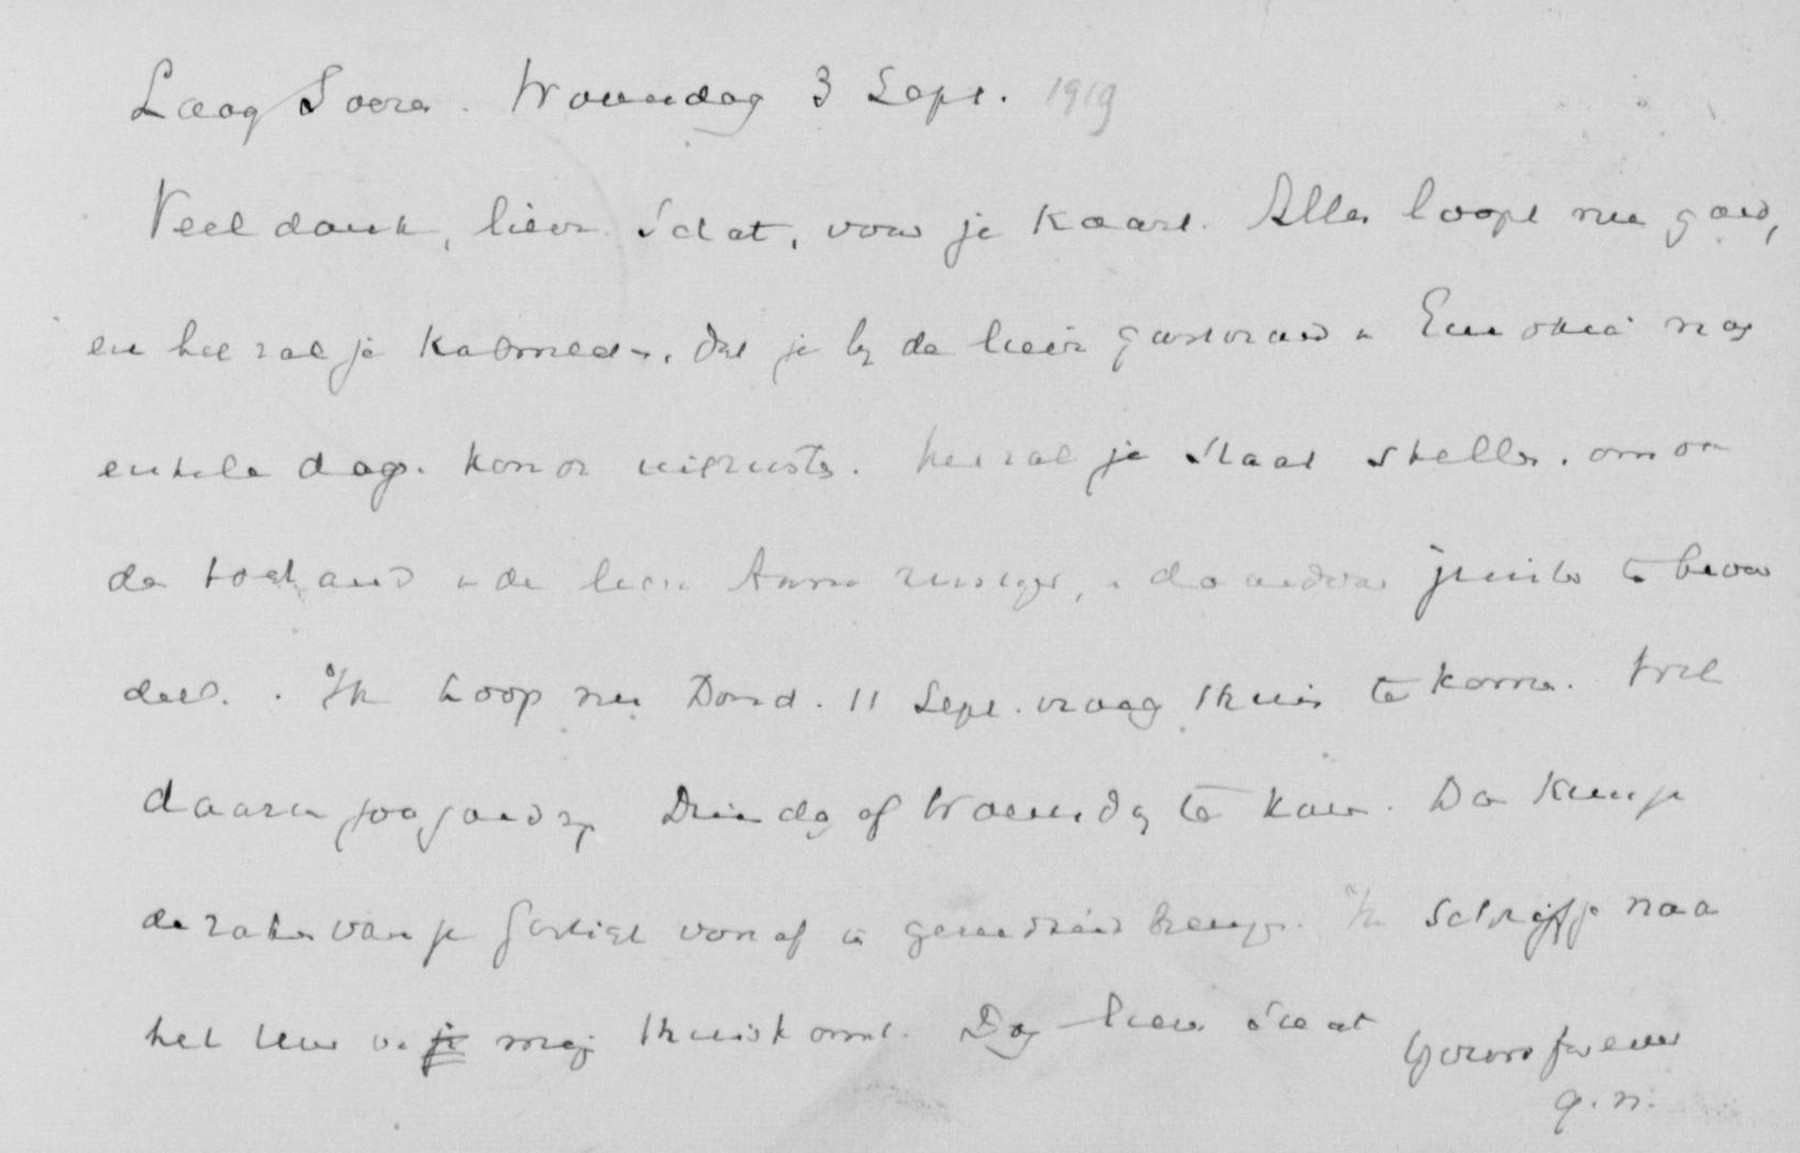 Laag Soeren. Woensdag 3 Sept. 1919
Veel dank, lieve Schat, voor je kaart. Alles loopt nu goed,
en het zal je kalmeeren, dat je bij de lieve
enkele dagen kon uitrusten. Het zal je staat stellen, om
de toestand de lieve Anna rustiger, daardoor juister te beoor
deel. Ik hoop nu Dond. 11 Sept. vroeg thuis te komen. Tracht
daarin Dinsdag of Woensdag te komen. Dan kun je
de zaken van je gesticht vanaf gereedheid brengen. Ik schrijf je naar
het uur v. je mij thuiskomst. Dag lieve Schat Yours for ever
G. N.